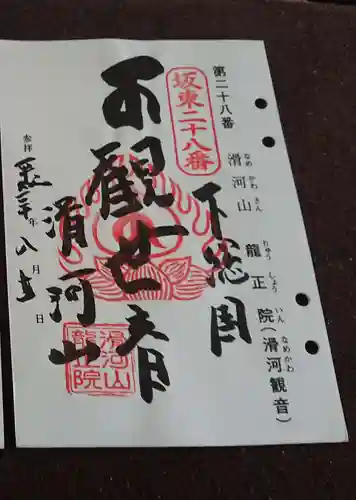 第二十八番 滑河山 龍正院(滑河観音)
なめ かわ さん りゅう しょう いん なめかわ
坂東二十八番
下総国
観世音
滑河山
滑河山
龍正院
参拝
年 八月 日